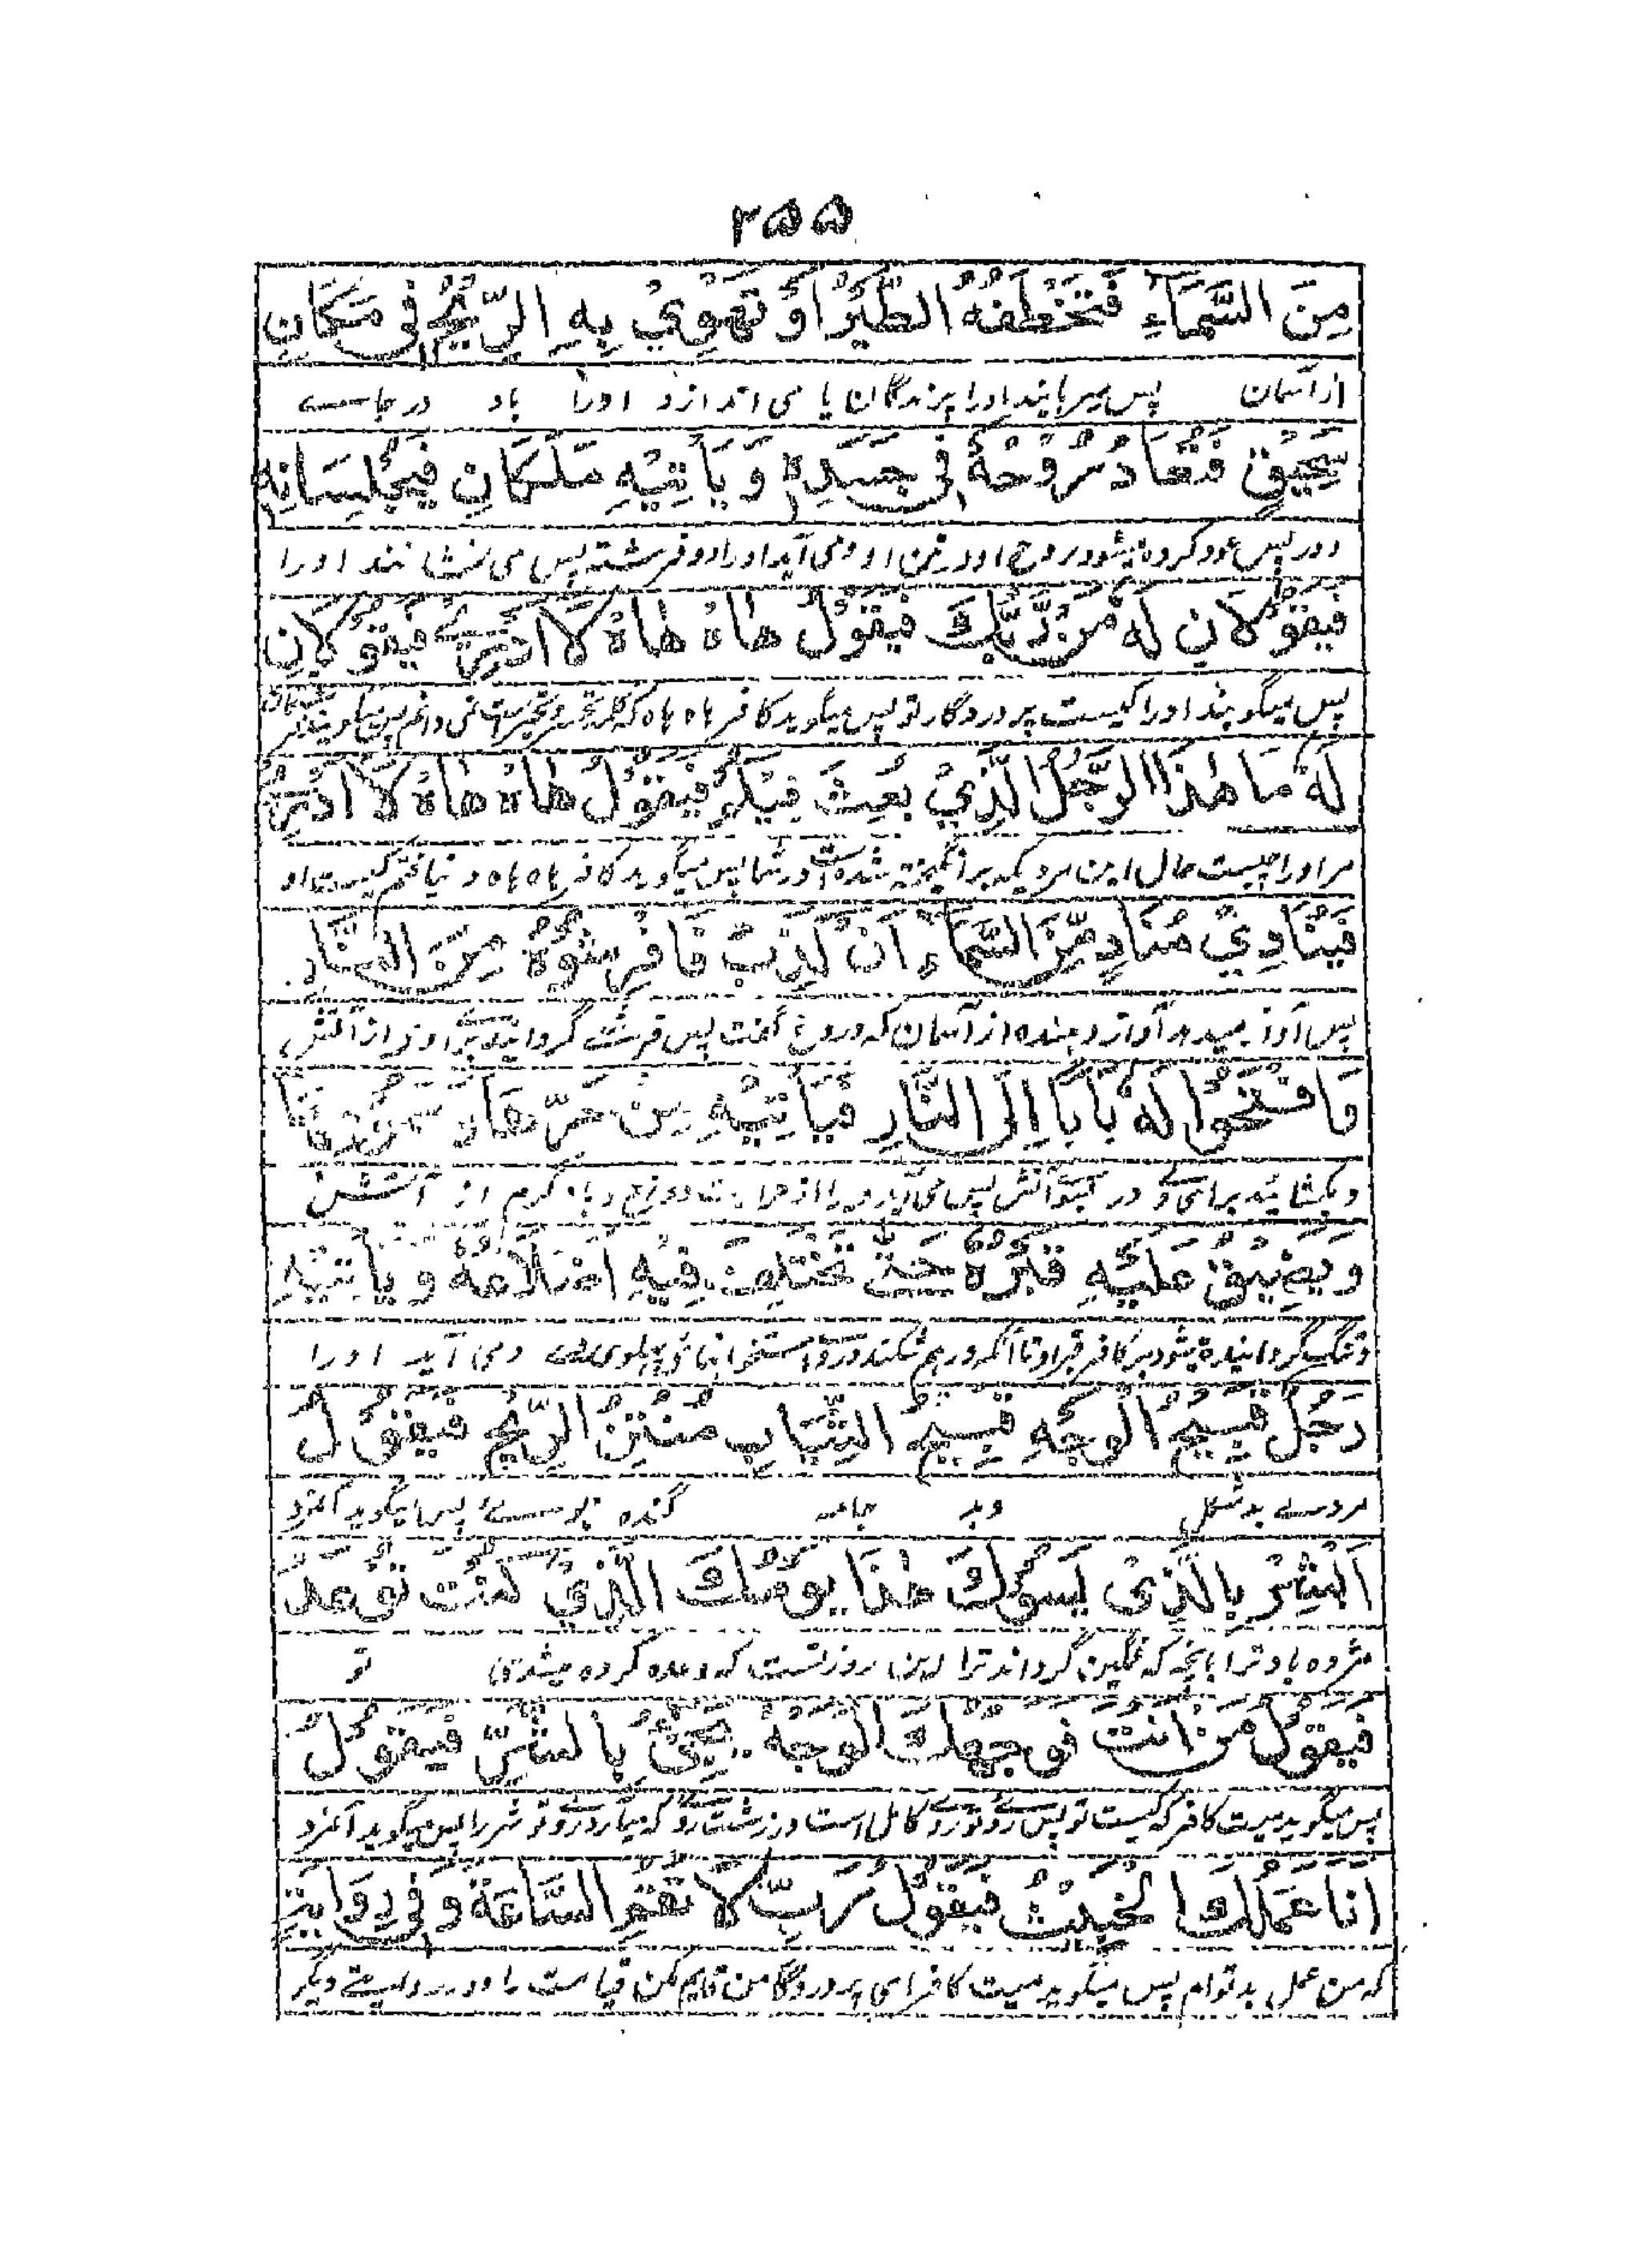 ۲۵۵
مِنَ السَّمَاءِ فَتَخْطَفُهُ الطَّيْرُ اَوْ تَهْوِيْ بِهِ الرِّيْحُ فِي مَكَانٍ
از آسمان پس میربایند اورا پرندگان یا می اندازد اورا باد در جاے
سَحِيْقٍ فَتُعَادُ رُوْحُهُ فِي جَسَدِهِ وَيَأْتِيْهِ مَلَكَانِ فَيُجْلِسَانِهِ
دور پس عود کرده میشود روح او در تن او و می آید اورا دو فرشته پس می نشانند اورا
فَيَقُوْلَانِ لَهُ مَنْ رَّبُّكَ فَيَقُوْلُ هَاهْ هَاهْ لَا اَدْرِيْ فَيَقُوْلَانِ
پس میگویند اورا کیست پروردگار تو پس میگوید کافر هاه هاه که کلمه تحیر است نمی دانم پس میگویند
لَهُ مَا هٰذَا الرَّجُلُ الَّذِيْ بُعِثَ فِيْكُمْ فَيَقُوْلُ هَاهْ هَاهْ لَا اَدْرِيْ
مر اورا چیست حال این مردیکه برانگیخته شده است در شما پس میگوید کافر هاه هاه
فَيُنَادِيْ مُنَادٍ مِّنَ السَّمَاءِ اَنْ كَذَبَ فَافْرِشُوْهُ مِنَ النَّارِ
پس آواز میدهد آواز دهنده از آسمان که دروغ گفت پس فرش از آتش
وَافْتَحُوْا لَهُ بَابًا اِلَى النَّارِ فَيَأْتِيْهِ مِنْ حَرِّهَا وَ سَمُوْمِهَا
و بکشائید برای وے در آتش پس می آید اورا از حرارت دوزخ و باد گرم از آتش
وَيُضَيَّقُ عَلَيْهِ قَبْرُهُ حَتّٰى تَخْتَلِفَ فِيْهِ اَضْلَاعُهُ وَيَأْتِيْهِ
و تنگ گردانیده میشود بر کافر قبر او تا آنکه درهم شکند استخوانهای پهلوی وے و می آید اورا
رَجُلٌ قَبِيْحُ الْوَجْهِ قَبِيْحُ الثِّيَابِ مُنْتِنُ الرِّيْحِ فَيَقُوْلُ
مردے بدشکل و بد جامه گنده بوے پس میگوید آنمرد
اَبْشِرْ بِالَّذِيْ يَسُوْءُكَ هٰذَا يَوْمُكَ الَّذِيْ كُنْتَ تُوْعَدُ
مژده باد ترا بآنچه که غمگین گرداند ترا این روز تست که وعده کرده میشدی تو
فَيَقُوْلُ مَنْ اَنْتَ فَوَجْهُكَ الْوَجْهُ يَجِيْءُ بِالشَّرِّ فَيَقُوْلُ
پس میگوید میت کافر که کیست تو پس روے تو روے کامل است در زشتی که شر را پس میگوید آنمرد
اَنَا عَمَلُكَ الْخَبِيْثُ فَيَقُوْلُ رَبِّ لَا تُقِمِ السَّاعَةَ وَفِيْ رِوَايَةٍ
که من عمل بد توام پس میگوید میت کافر ای پروردگار من قایم مکن قیامت را و در روایتے دیگر